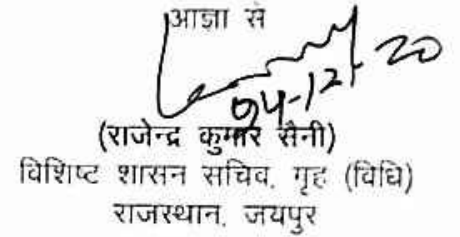 आज्ञा से
04-12-20
(राजेन्द्र कुमार सैनी)
विशिष्ट शासन सचिव, गृह (विधि)
राजस्थान, जयपुर